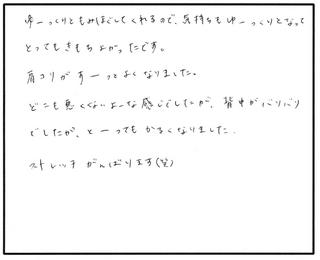 ゆーっくりともみほぐしてくれるので、気持ちもゆーっくりとなって
とってもきもちよかったです。
肩コリがすーっとよくなりました。
どこも悪くないよーな感じでしたが、背中がバリバリ
でしたが、とーってもかるくなりました。
ストレッチがんばります(笑)